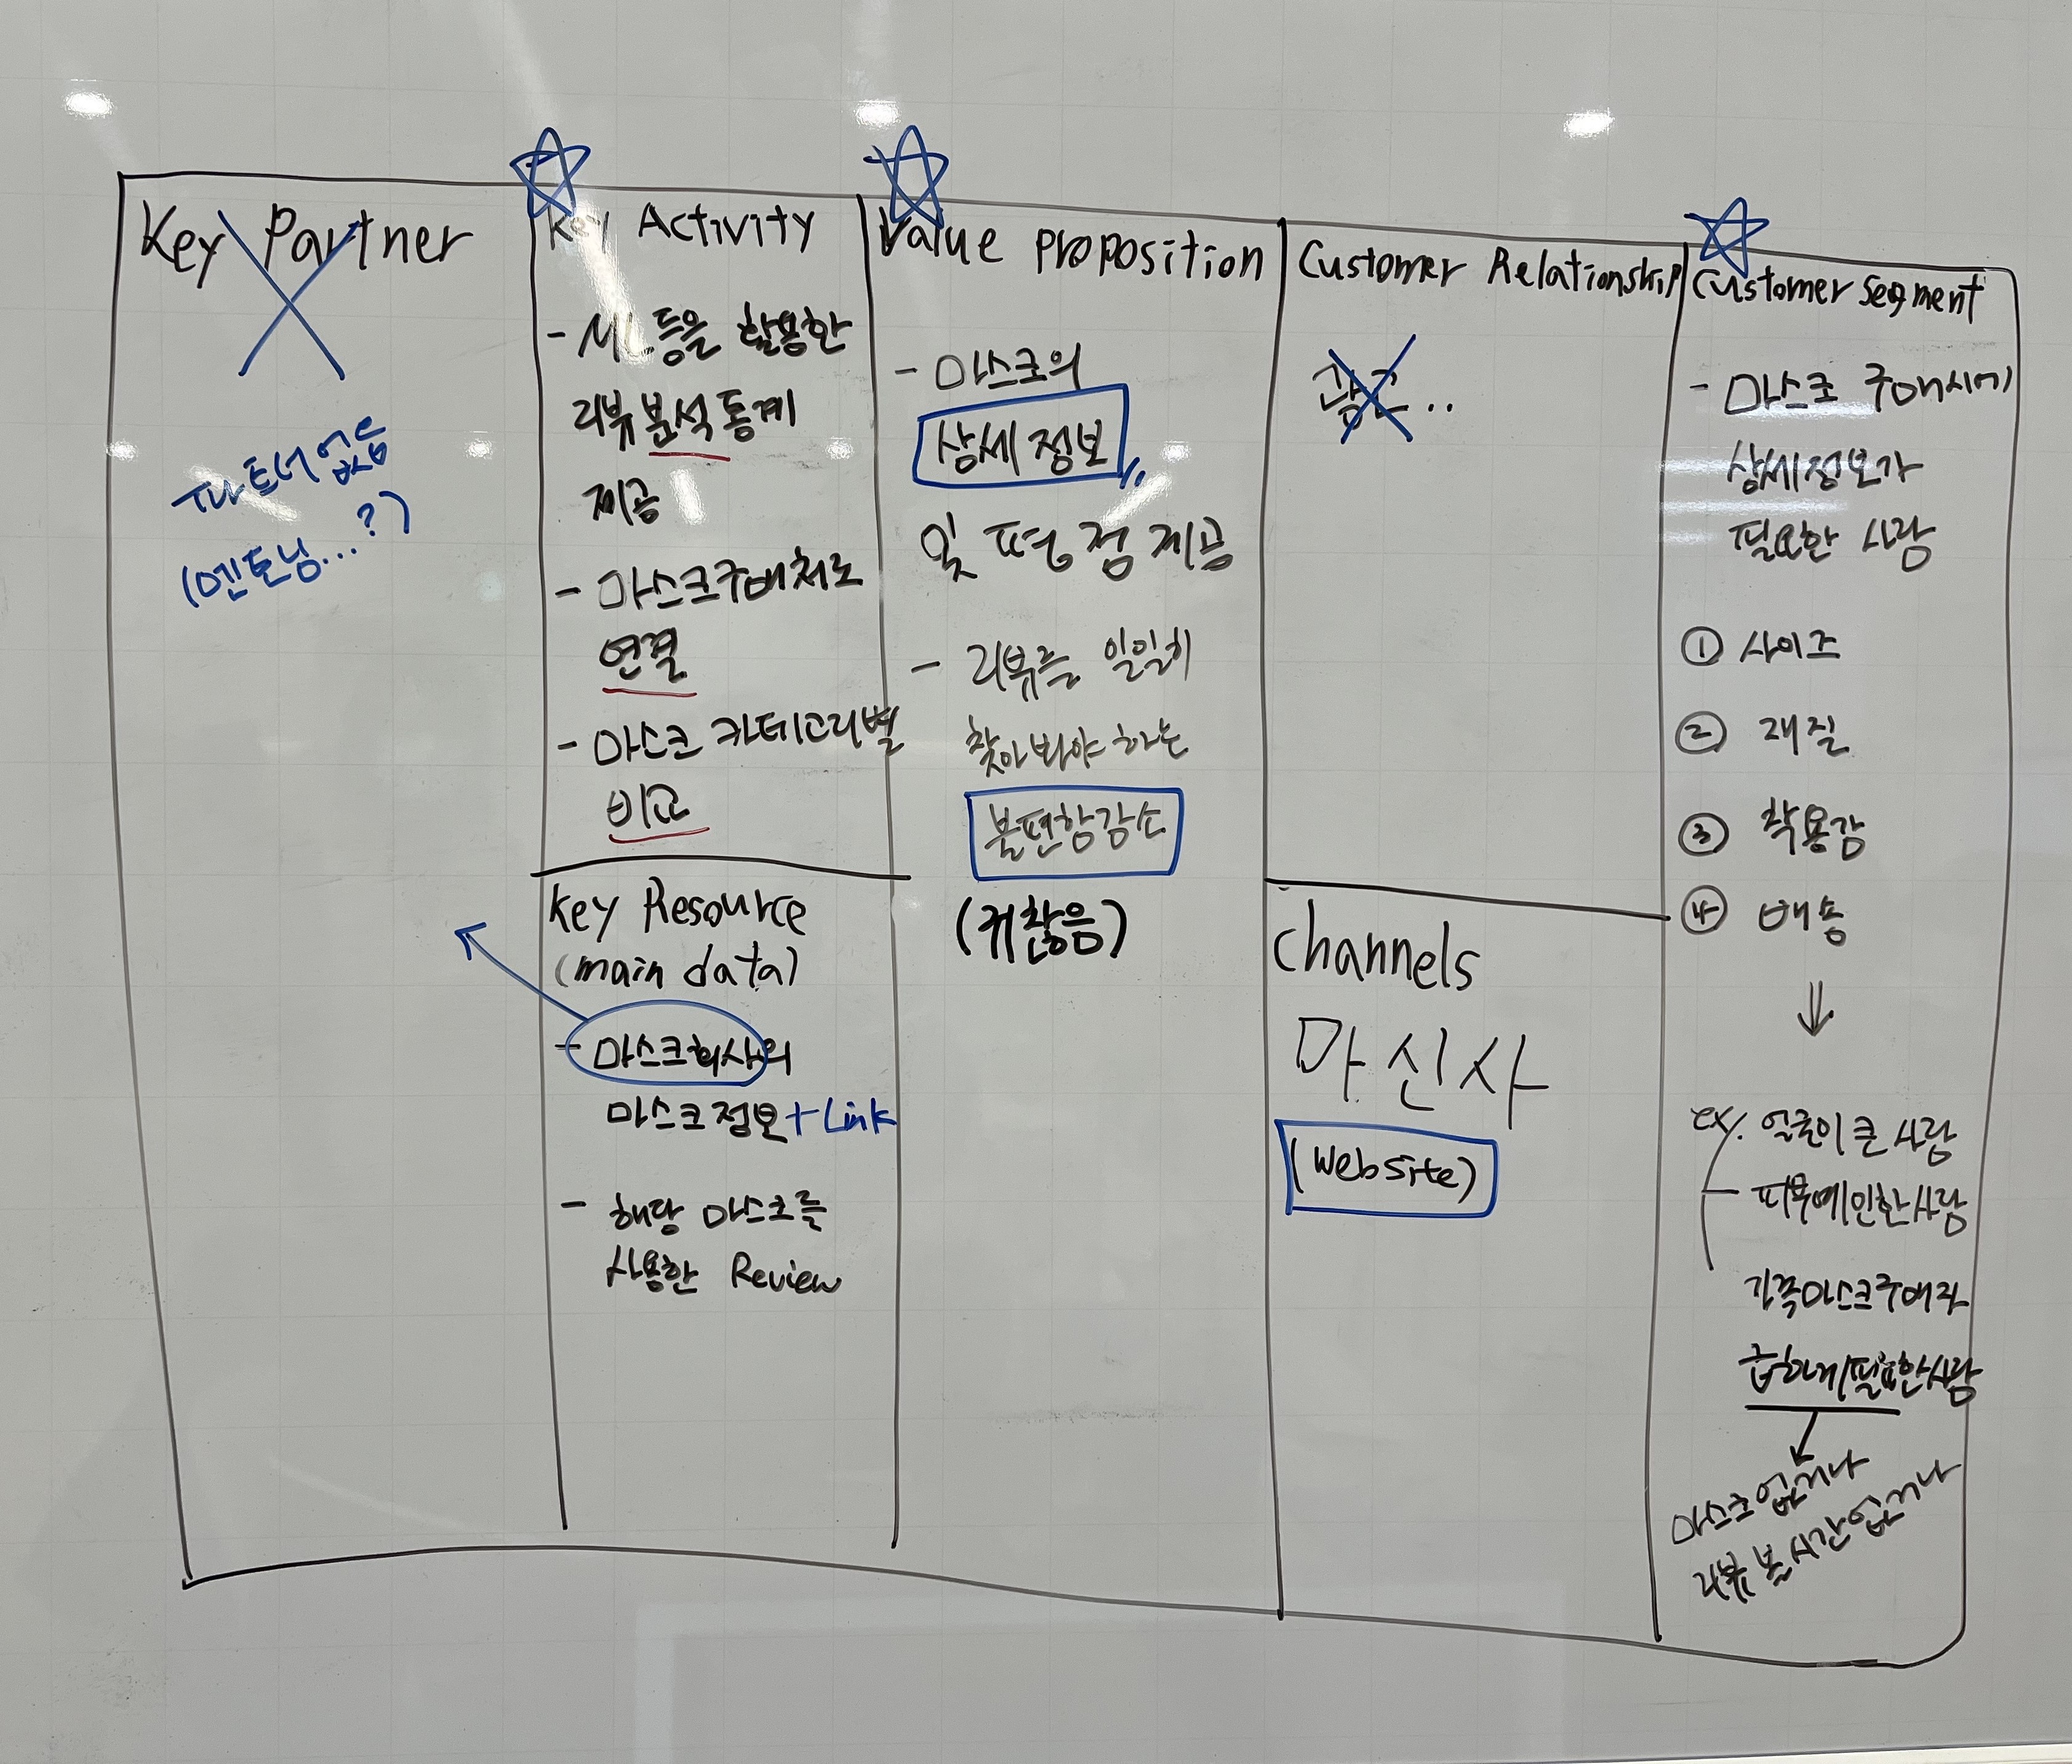 Key Partner
파트너 없음
(멘토님...?)
Key Activity
- ML 등을 활용한
리뷰 분석 통계
제공
- 마스크 구매처로
연결
- 마스크 카테고리별
비교
Key Resource
(main data)
- 마스크회사의
마스크 정보 + Link
- 해당 마스크를
사용한 Review
Value Proposition
- 마스크의
상세 정보
및 평점 제공
- 리뷰를 일일히
찾아봐야 하는
불편함 감소
(귀찮음)
Customer Relationship
Channels
마신사
(Website)
Customer Segment
- 마스크 구매시에
상세정보가
필요한 사람
① 사이즈
② 재질
③ 착용감
④ 배송
ex. 얼굴이 큰 사람
피부예민한사람
가족마스크구매자
급하게 필요한사람
마스크 없거나
리뷰 볼 시간 없거나